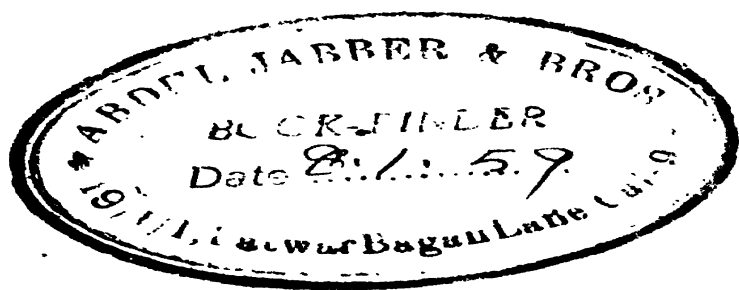 ABDUL JABBER & BROS
BOOK-BINDER
Date 8.1.59
Patwar Bagan Lane Cal-9